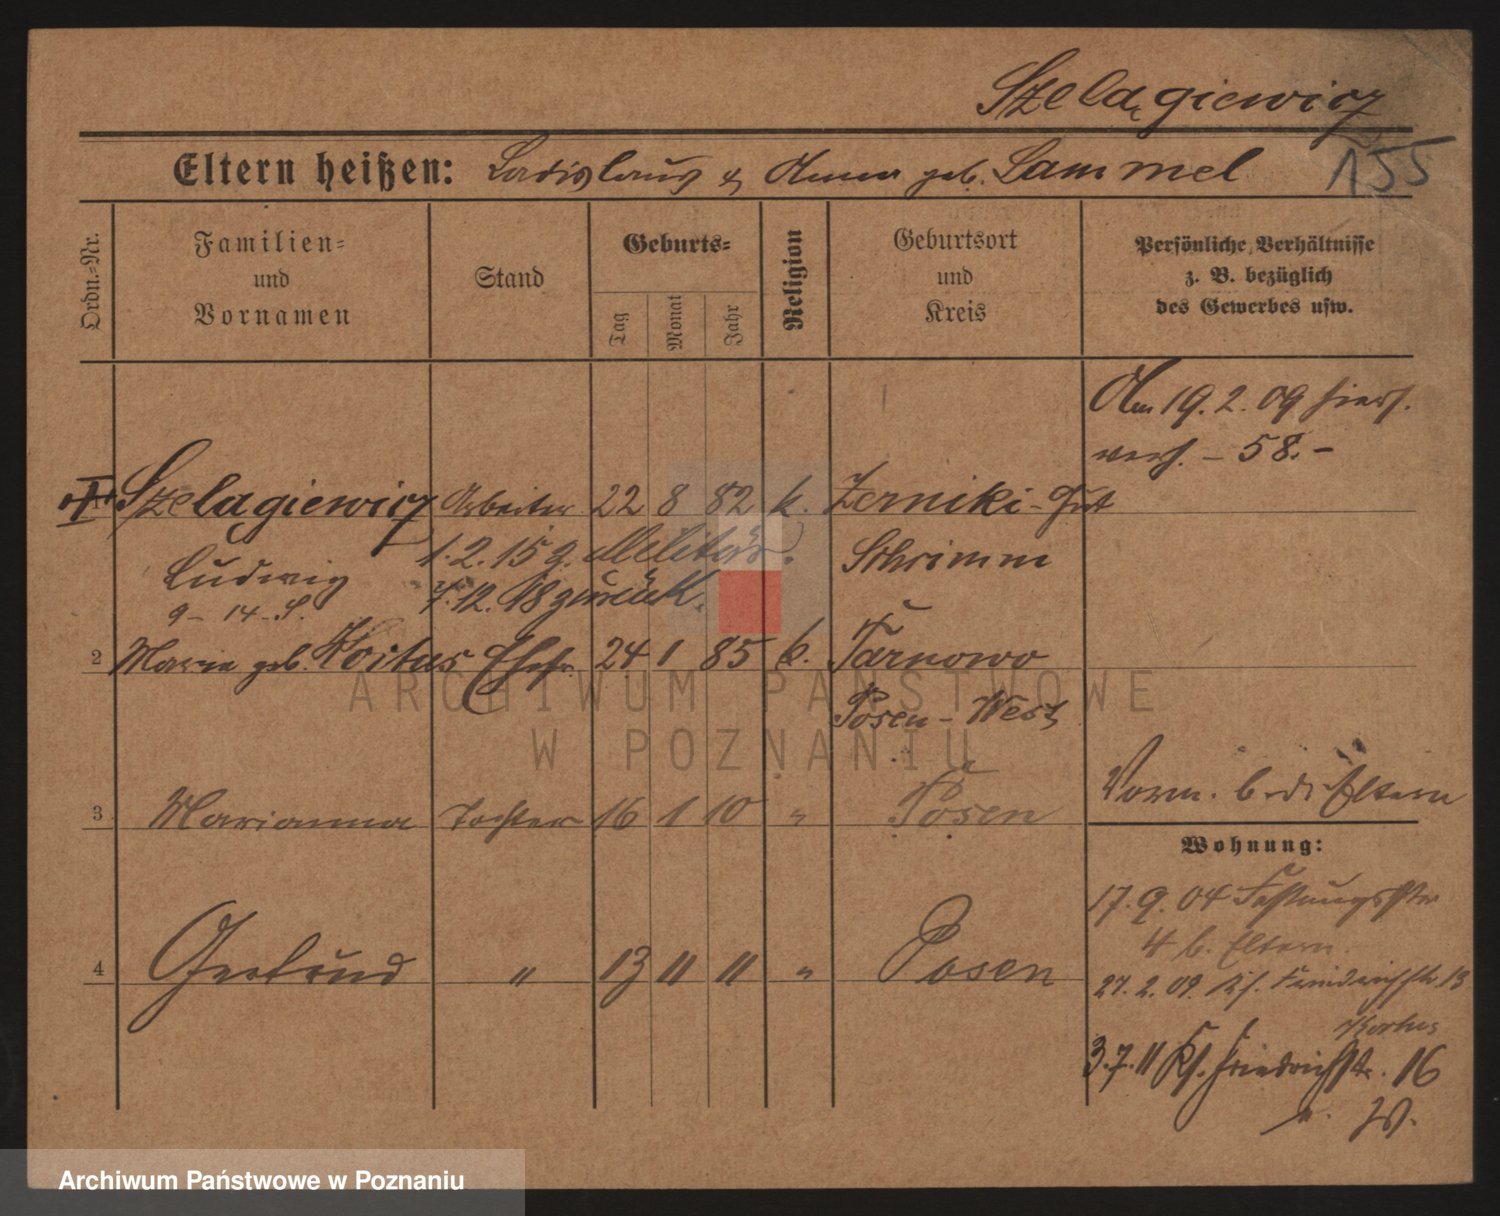 Szelągiewicz
155
Eltern heißen: Ladislaus & Anna geb. Lammel
Ordn.-Nr.
Familien-
und
Vornamen
Stand
Geburts-
Tag
Monat
Jahr
Religion
Geburtsort
und
Kreis
Persönliche Verhältnisse
z. B. bezüglich
des Gewerbes usw.
Am 19. 2. 09 hiers.
verh. – 58. –
Szelagiewicz Arbeiter 22 8 82 k. Zerniki-Gut
Ludwig 1. 2. 15 z. Militär. Schrimm
9 – 14 – S. 7. 12. 18 zurück.
2 Maria geb. Kortus Ehefr. 24 1 85 k. Tarnowo
Posen-West
ARCHIWUM PAŃSTWOWE
W POZNANIU
3 Marianna Tochter 16 1 10 " Posen
Vorm. b. d. Eltern
Wohnung:
17. 9. 04 Festungsstr
4 b. Eltern.
4 Gertrud " 13 11 11 " Posen
27. 2. 09. Kl. Friedrichstr. 13
Kortus
3. 7. 11 Kl. Friedrichstr. 16
Archiwum Państwowe w Poznaniu